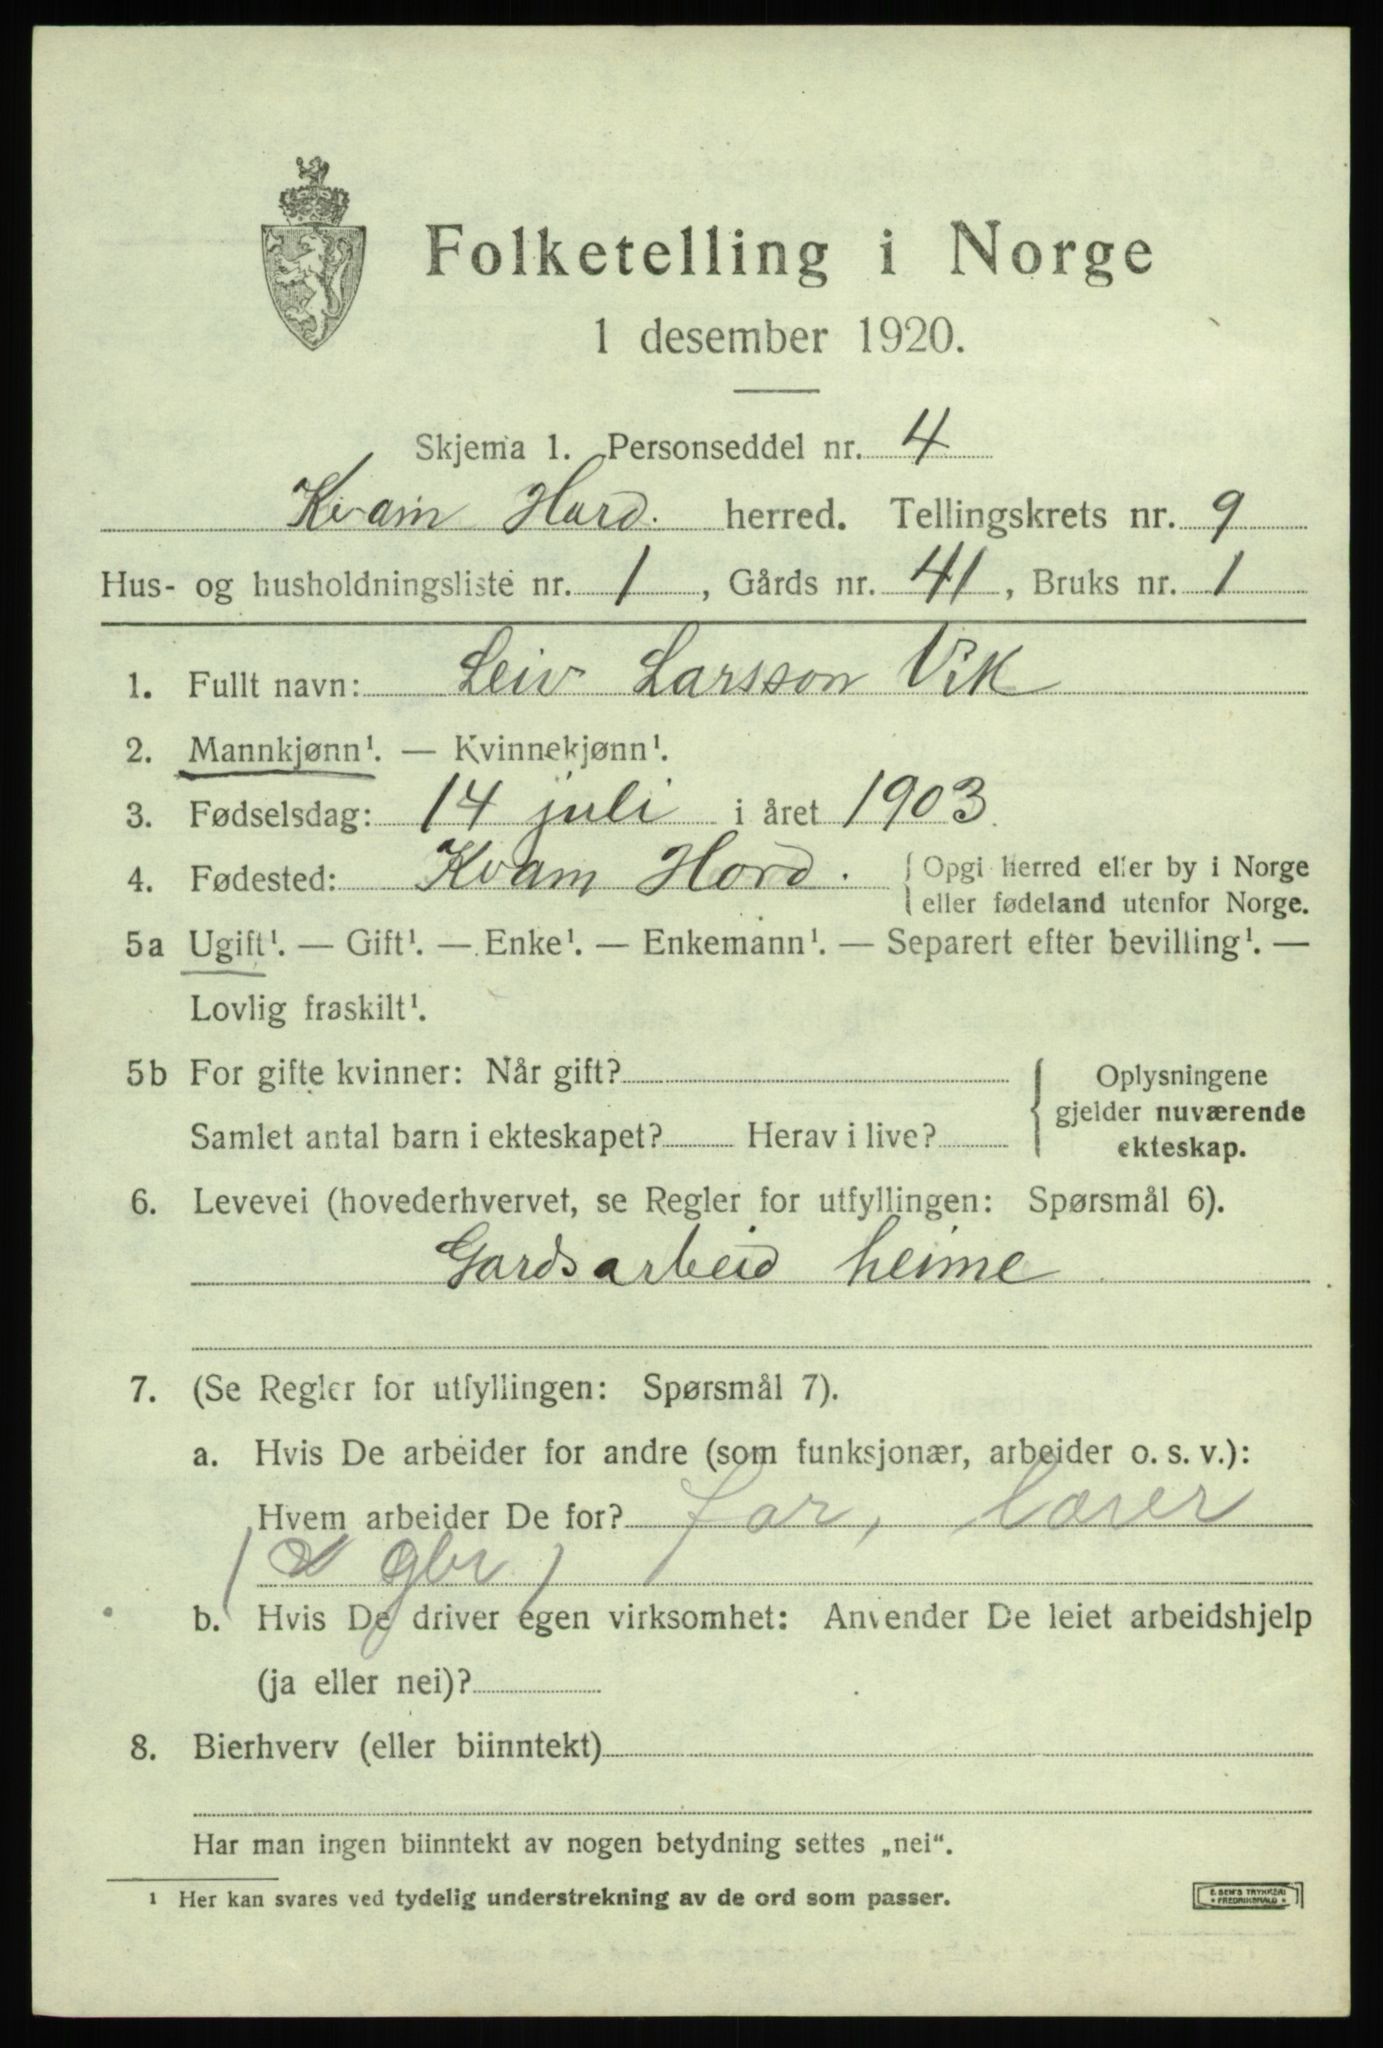 Folketelling i Norge
1 desember 1920.
Skjema 1. Personseddel nr. 4
Kvam Hard. herred. Tellingskrets nr. 9
Hus- og husholdningsliste nr. 1, Gårds nr. 41, Bruks nr. 1
1. Fullt navn: Leiv Larsson Vik
2. Mannkjønn¹. — Kvinnekjønn¹.
3. Fødselsdag: 14 juli i året 1903.
4. Fødested: Kvam Hord. { Opgi herred eller by i Norge
eller fødeland utenfor Norge.
5a Ugift¹. — Gift¹. — Enke¹. — Enkemann¹. — Separert efter bevilling¹. —
Lovlig fraskilt¹.
5b For gifte kvinner: Når gift? { Oplysningene
gjelder nuværende
Samlet antal barn i ekteskapet? Herav i live? ekteskap.
6. Levevei (hovederhvervet, se Regler for utfyllingen: Spørsmål 6).
Gardsarbeid heime
7. (Se Regler for utfyllingen: Spørsmål 7).
a. Hvis De arbeider for andre (som funksjonær, arbeider o. s. v.):
Hvem arbeider De for? far, lærer
( gbr )
b. Hvis De driver egen virksomhet: Anvender De leiet arbeidshjelp
(ja eller nei)?
8. Bierhverv (eller biinntekt)
Har man ingen biinntekt av nogen betydning settes „nei“.
¹ Her kan svares ved tydelig understrekning av de ord som passer.
E. SEM'S TRYKKERI
* FREDRIKSHALD *